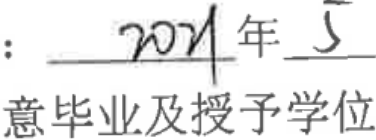 : 2021年5
意毕业及授予学位